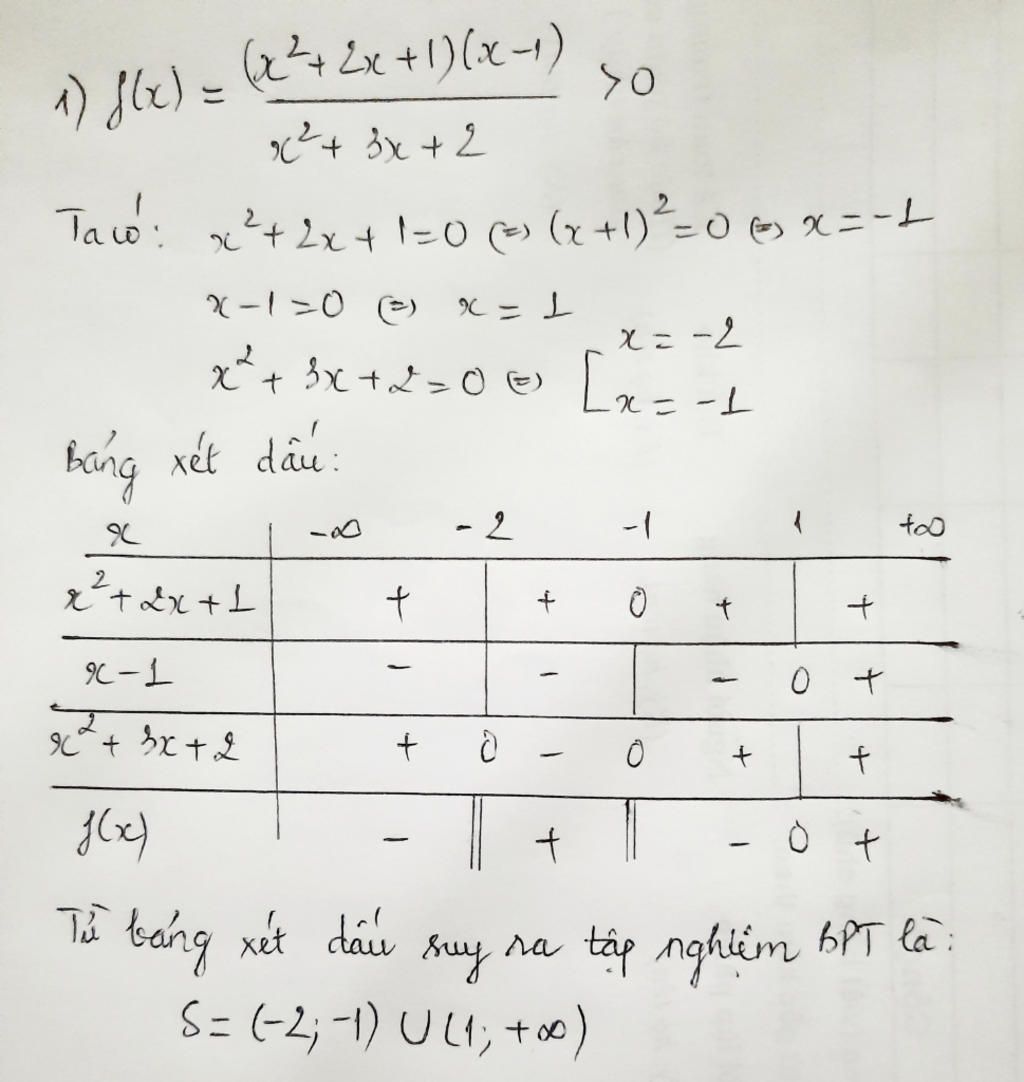 1) f(x) = (x²+2x+1)(x-1) / x²+3x+2 >0
Ta có: x²+2x+1=0 ⇔ (x+1)²=0 ⇔ x=-1
x-1=0 ⇔ x=1
x²+3x+2=0 ⇔ [x=-2
x=-1
Bảng xét dấu:
x | -∞ -2 -1 1 +∞
x²+2x+1 | + | + 0 + | +
x-1 | - | - | - 0 +
x²+3x+2 | + 0 - 0 + | +
f(x) | - || + || - 0 +
Từ bảng xét dấu suy ra tập nghiệm BPT là:
S=(-2;-1)∪(1;+∞)